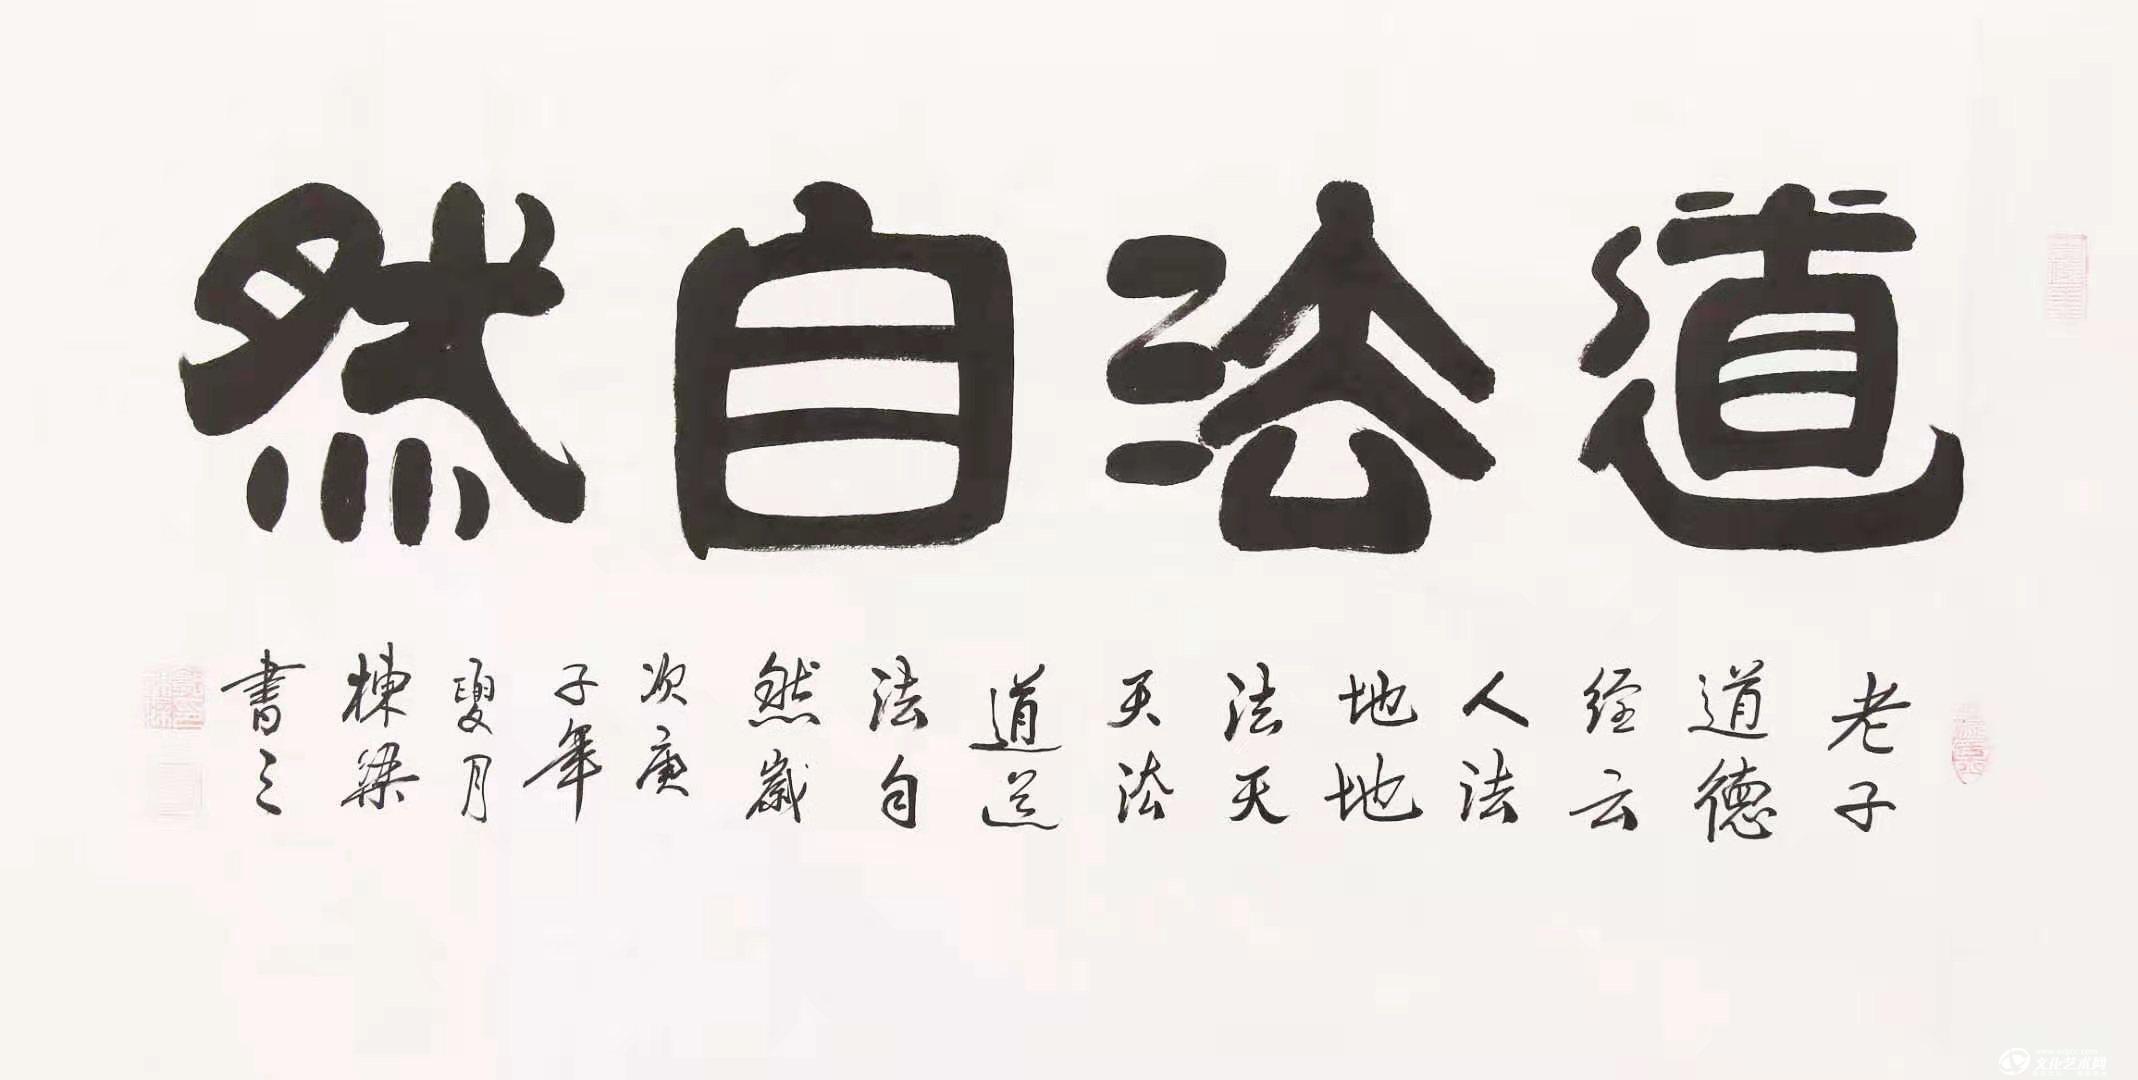 道法自然
老子
道德
经云
人法
地地
法天
天法
道道
法自
然歲
次庚
子年
夏月
棟梁
書之
文化艺术网